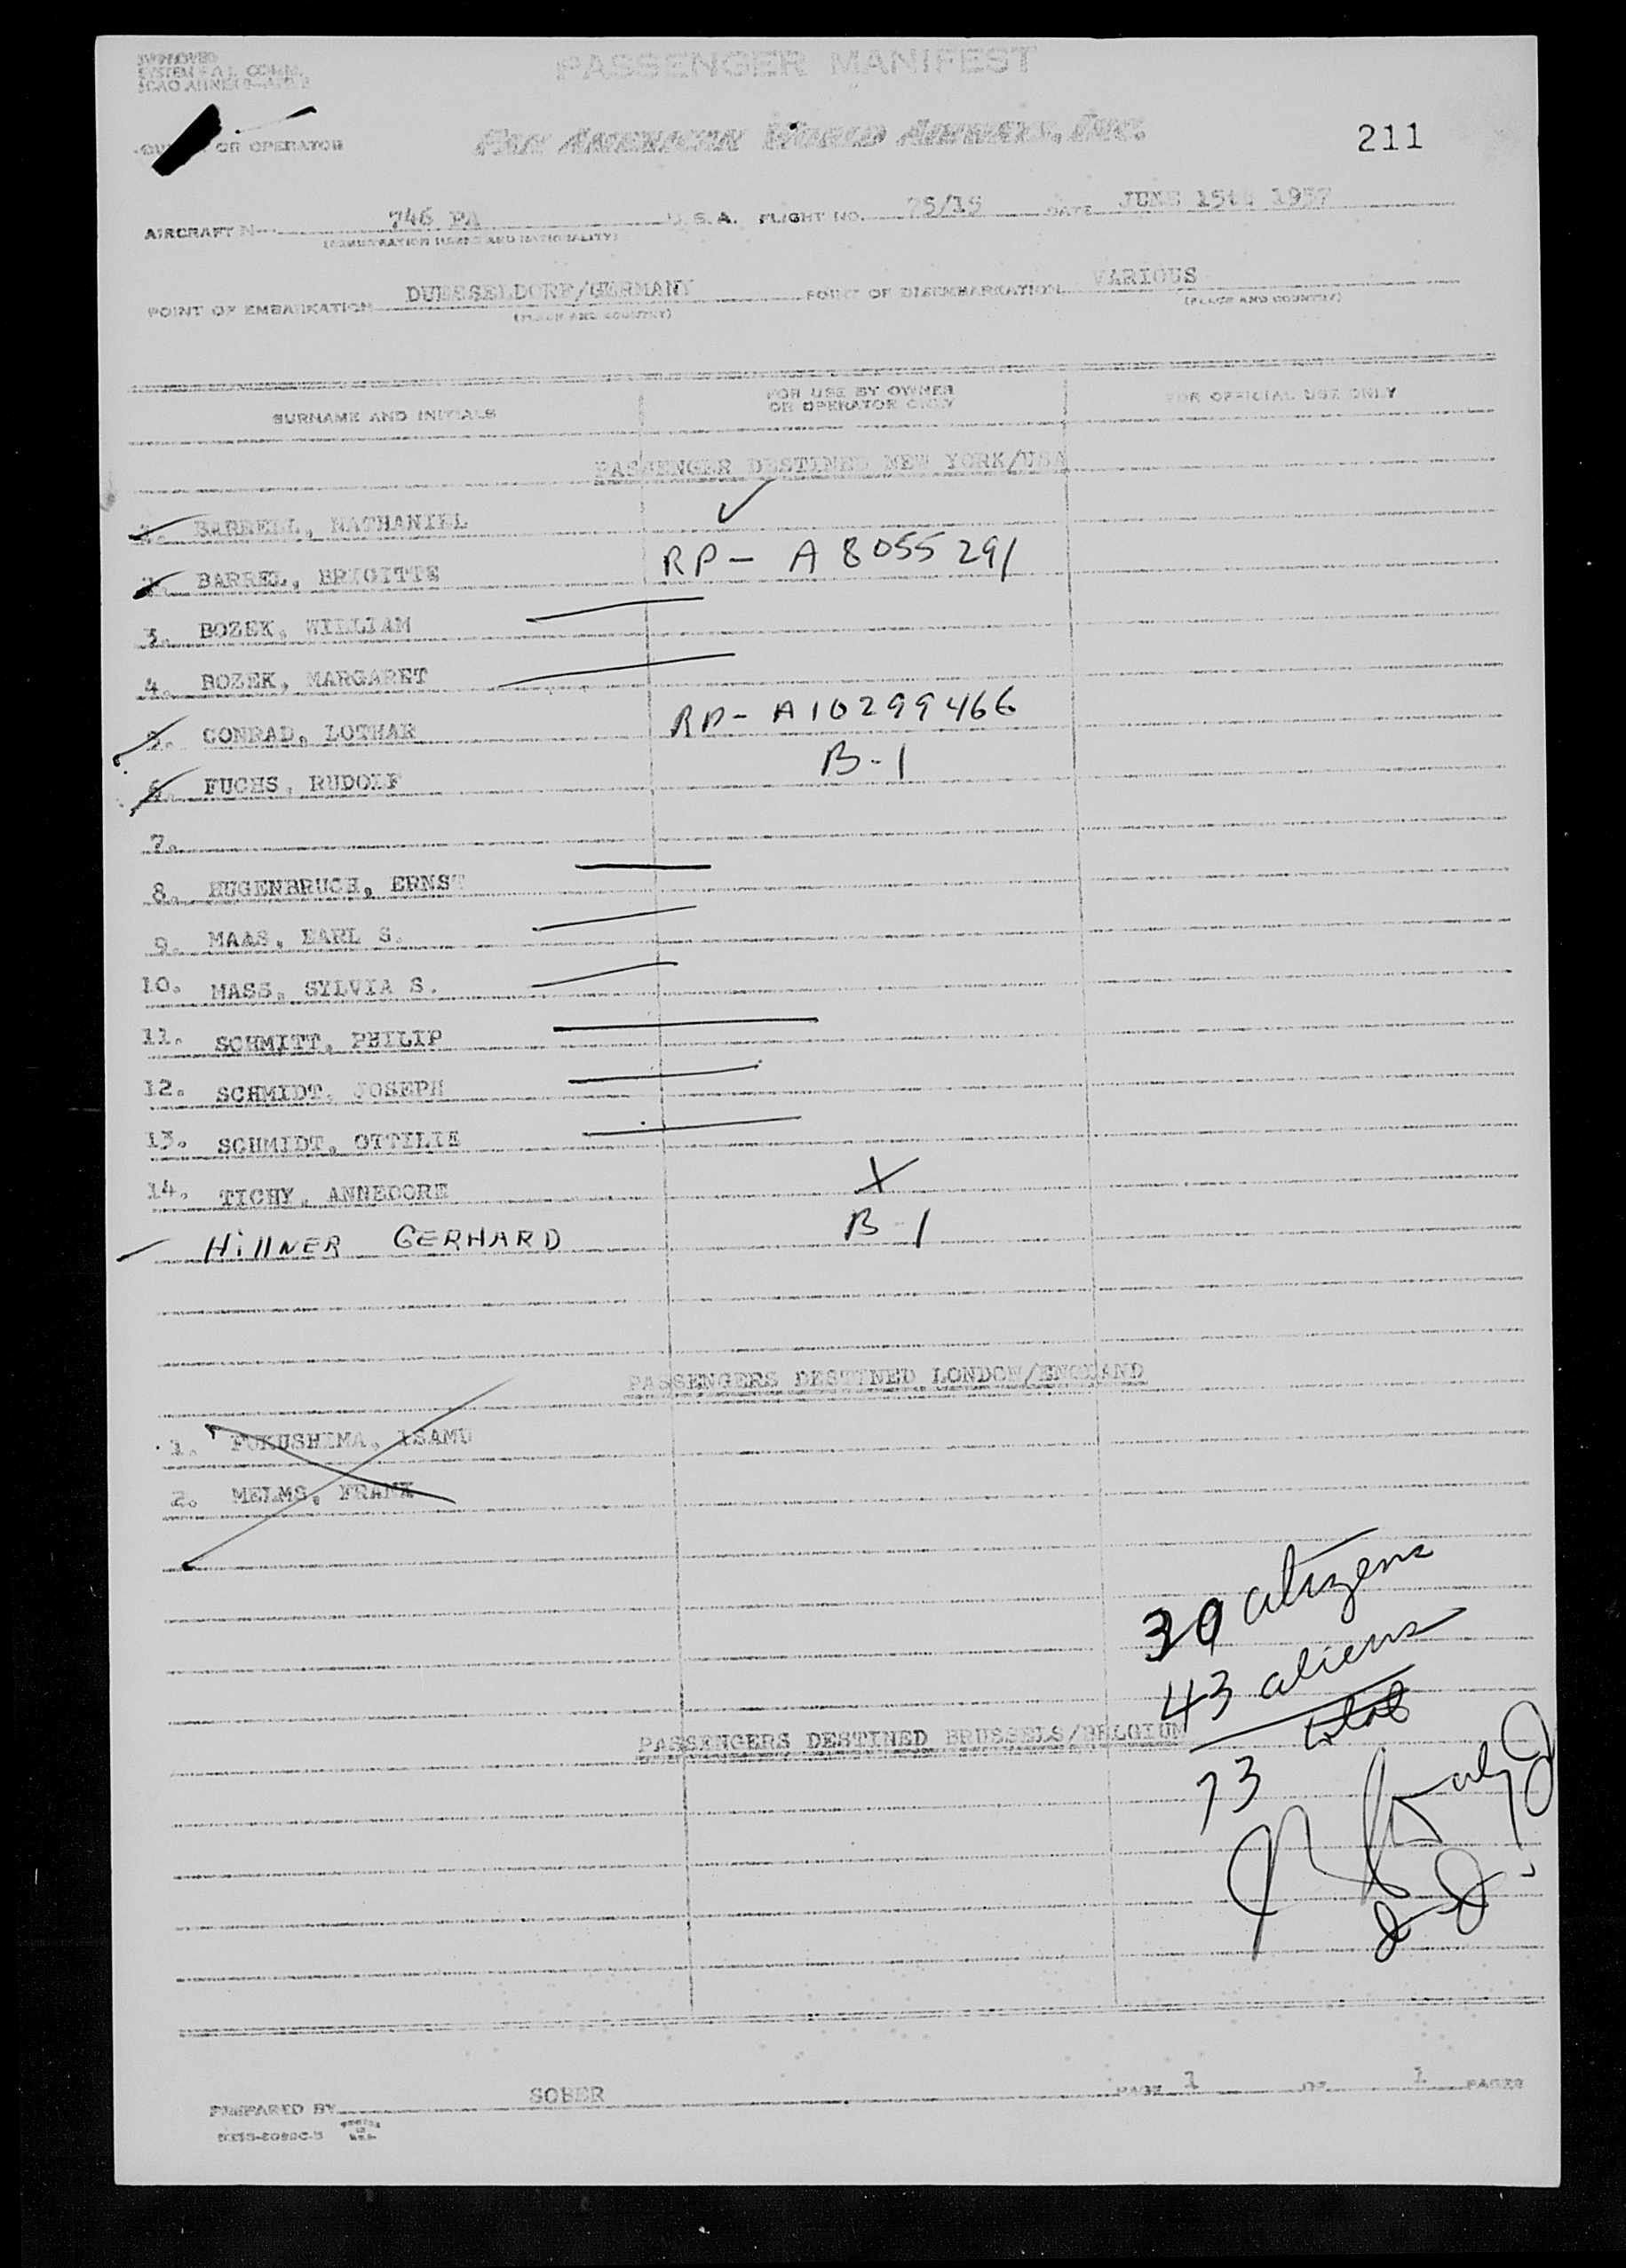 APPROVED
SYSTEM F.A.L. COMM.
ICAO ANNEX 9
PASSENGER MANIFEST
OR OPERATOR
PAN AMERICAN WORLD AIRWAYS, INC.
211
AIRCRAFT N 746 PA U.S.A. FLIGHT NO. 75/15 DATE JUNE 15th 1957
(REGISTRATION MARKS AND NATIONALITY)
POINT OF EMBARKATION DUESSELDORF/GERMANY POINT OF DISEMBARKATION VARIOUS
(PLACE AND COUNTRY) (PLACE AND COUNTRY)
SURNAME AND INITIALS FOR USE BY OWNER OR OPERATOR ONLY FOR OFFICIAL USE ONLY
PASSENGER DESTINED NEW YORK/USA
1. BARRELL, NATHANIEL ✓
2. BARREL, BRIGITTE RP- A 8055 291
3. BOZEK, WILLIAM
4. BOZEK, MARGARET
5. CONRAD, LOTHAR RP- A10299466
6. FUCHS, RUDOLF B-1
7.
8. HUGENBRUCH, ERNST
9. MAAS, EARL S.
10. MASS, SYLVIA S.
11. SCHMITT, PHILIP
12. SCHMIDT, JOSEPH
13. SCHMIDT, OTTILIE
14. TICHY, ANNEDORE X
HillNER GERHARD B-1
PASSENGERS DESTINED LONDON/ENGLAND
1. FUKUSHIMA, ISAMU
2. MELMS, FRANZ
30 citizens
43 aliens
PASSENGERS DESTINED BRUSSELS/BELGIUM
73 total
PREPARED BY SOBER PAGE 1 OF 1 PAGES
PRINTED IN U.S.A.